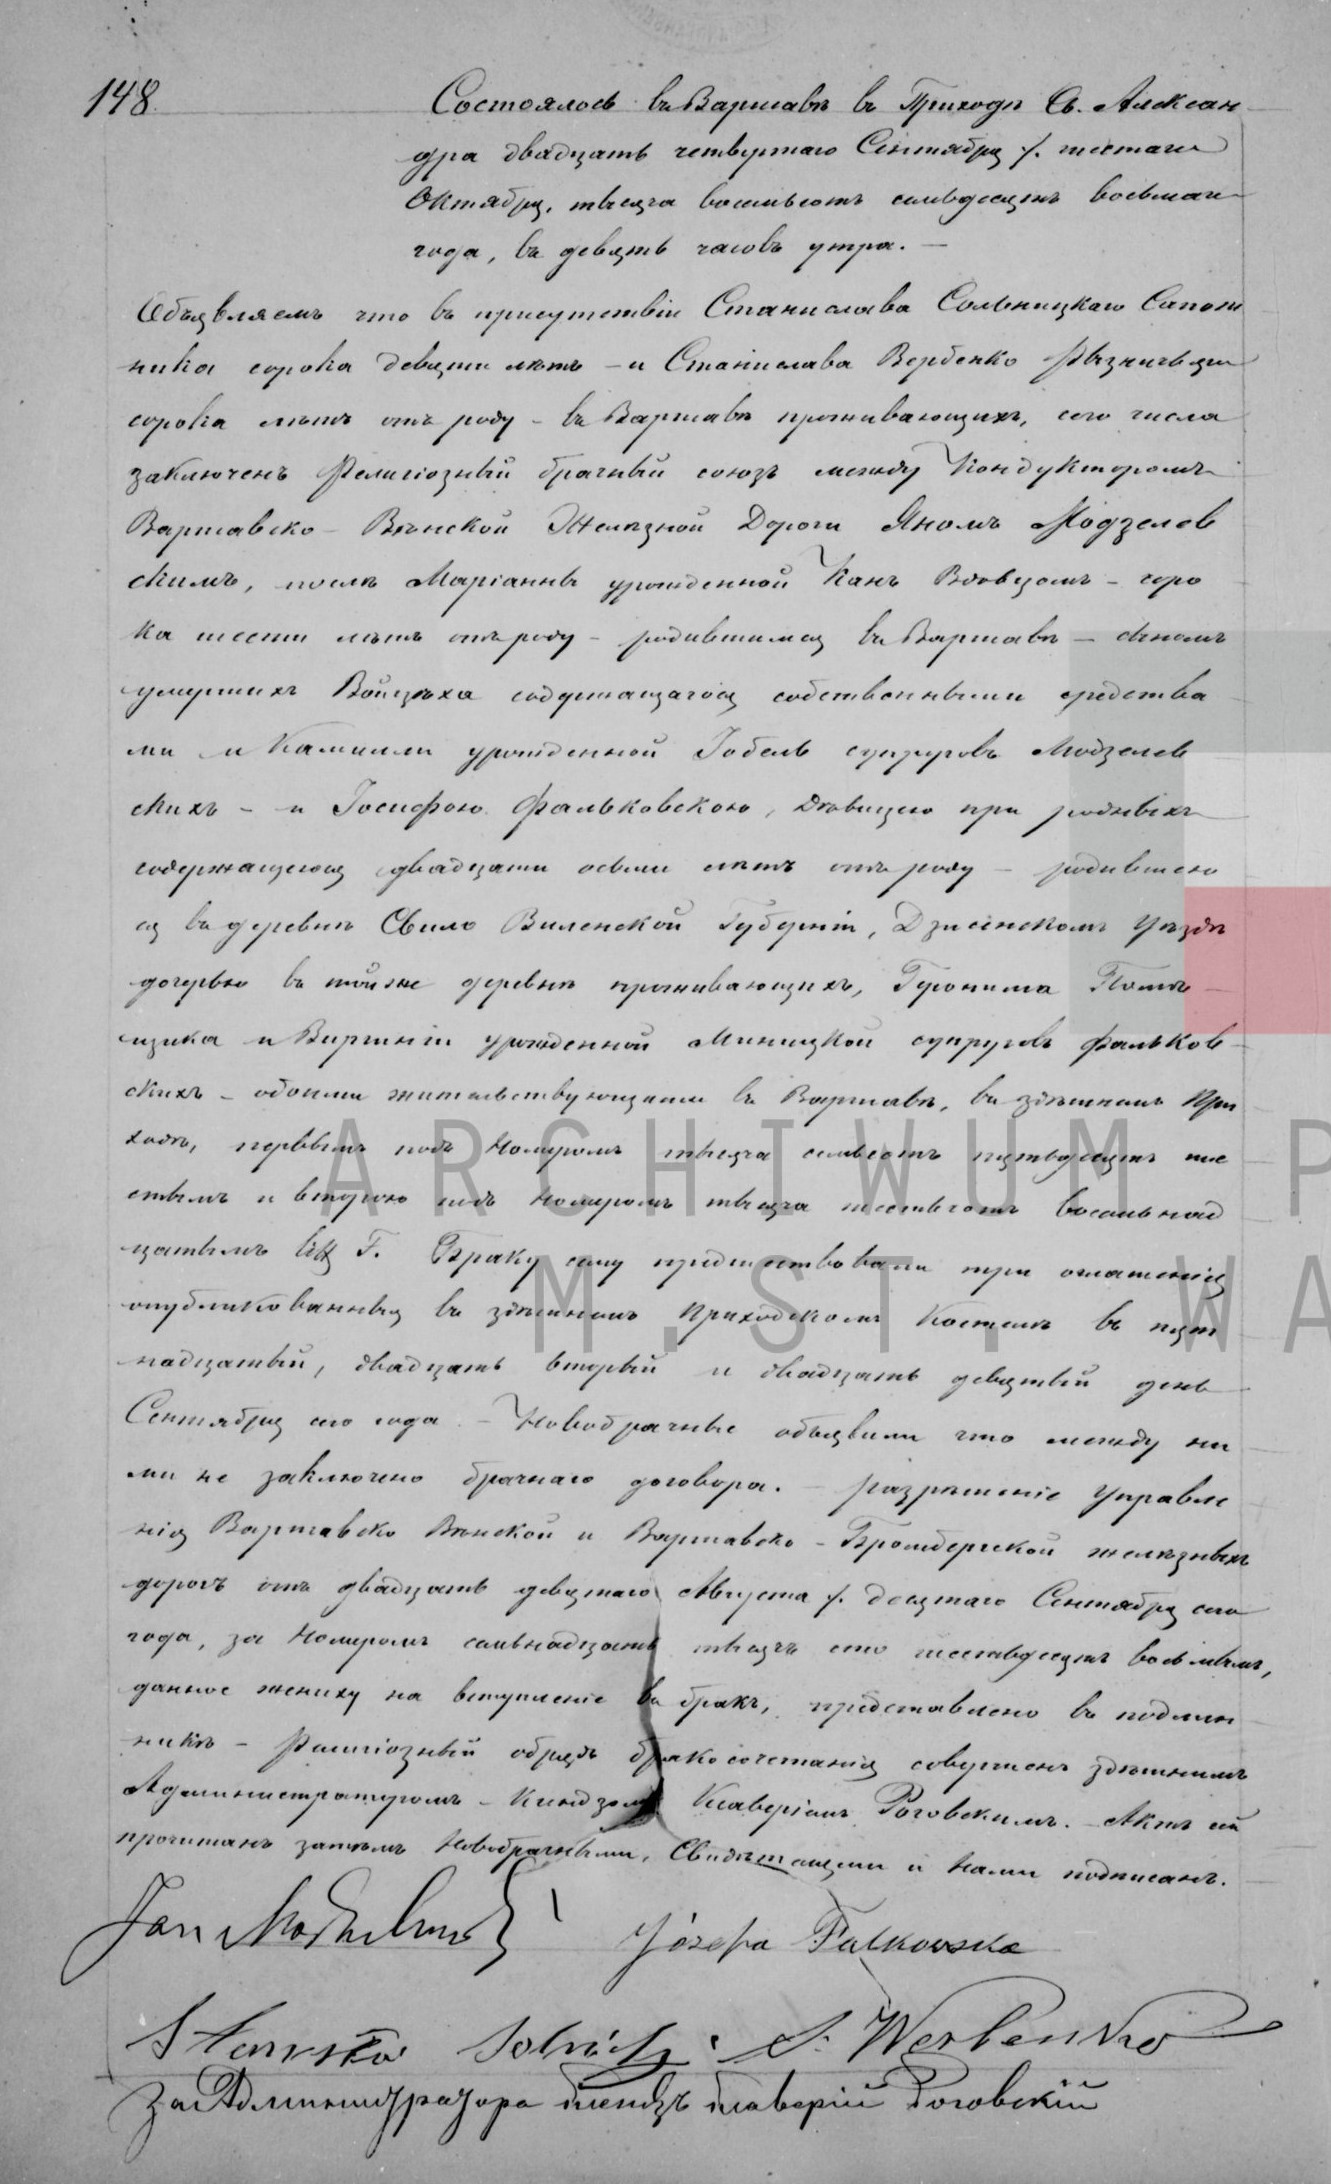 148
Состоялось въ Варшавѣ въ Приходѣ Св. Алексан
дра двадцать четвертаго Сентября /. шестаго
Октября, тысяча восемьсотъ семьдесятъ восьмаго
года, въ девять часовъ утра. —
Объявляемъ что въ присутствіи Станислава Сольницкаго Сапож
ника сорока девяти лѣтъ – и Станислава Вербенко
сорока лѣтъ отъ роду – въ Варшавѣ проживающихъ, сего числа
заключенъ Религіозный брачный союзъ между Кондукторомъ
Варшавско – Вѣнской Желѣзной Дороги Яномъ Модзелев
скимъ, послѣ Маріанны урожденной Канъ Вдовцомъ – соро
ка шести лѣтъ отъ роду – родившимся въ Варшавѣ – сыномъ
умершихъ Войцѣха содержащагося собственными средства
ми и Камилли урожденной Гобель супруговъ Модзелев
скихъ – и Іосифою Фальковскою, Дѣвицею при родныхъ
содержащеюся двадцати осьми лѣтъ отъ роду – родившею
ся въ деревнѣ Свило Виленской Губерніи, Дзисенскомъ Уѣздѣ
дочерью въ той же деревнѣ проживающихъ, Геронима Помѣ
щика и Виргиніи урожденной Миницкой супруговъ Фальков
скихъ – обоими жительствующими въ Варшавѣ, въ здѣшнемъ При
ходѣ, первымъ подъ Номеромъ тысяча семьсотъ пятьдесятъ ше
стымъ и второю подъ Номеромъ тысяча шестьсотъ восемьнад
цатымъ Браку сему предшествовали три оглашенія
опубликованныя въ здѣшнемъ Приходскомъ Костелѣ въ пят
надцатый, двадцать вторый и двадцать девятый день
Сентября сего года. – Новобрачные объявили что между ни
ми не заключено брачнаго договора. – Разрѣшеніе Управле
нія Варшавско Вѣнской и Варшавско – Бромбергской желѣзныхъ
дорогъ отъ двадцать девятаго Августа /. десятаго Сентября сего
года, за Номеромъ семьнадцать тысячъ сто шестьдесятъ восьмымъ,
данное жениху на вступленіе въ бракъ, представлено въ подлин
никѣ – Религіозный обрядъ бракосочетанія совершенъ здѣшнимъ
Администраторомъ – Ксендзомъ Ксаверіемъ Роговскимъ. – Актъ сей
прочитанъ затѣмъ Новобрачными, Свидѣтелями и Нами подписанъ.
Jan Modzelewski
Józefa Falkowska
Stanisław S. Werbenko
За Администратора Ксендзъ Ксаверій Роговскій
ARCHIWUM P
M.ST. WA